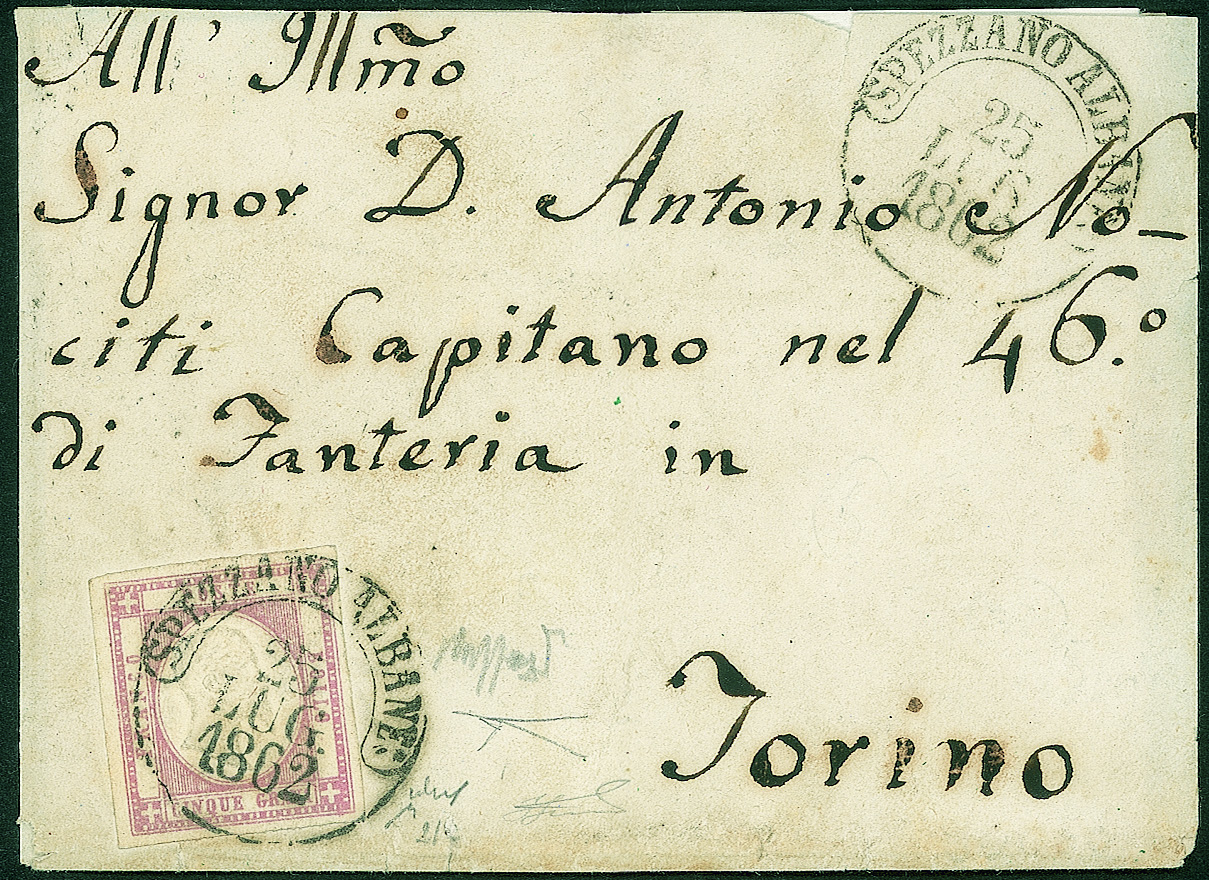 All' Illmo
SPEZZANO ALBANE
25
LUG
1862
Signor D. Antonio No-
citi Capitano nel 46.º
di Fanteria in
Torino
SPEZZANO ALBANE:
25
LUG.
1862
CINQUE GRANA